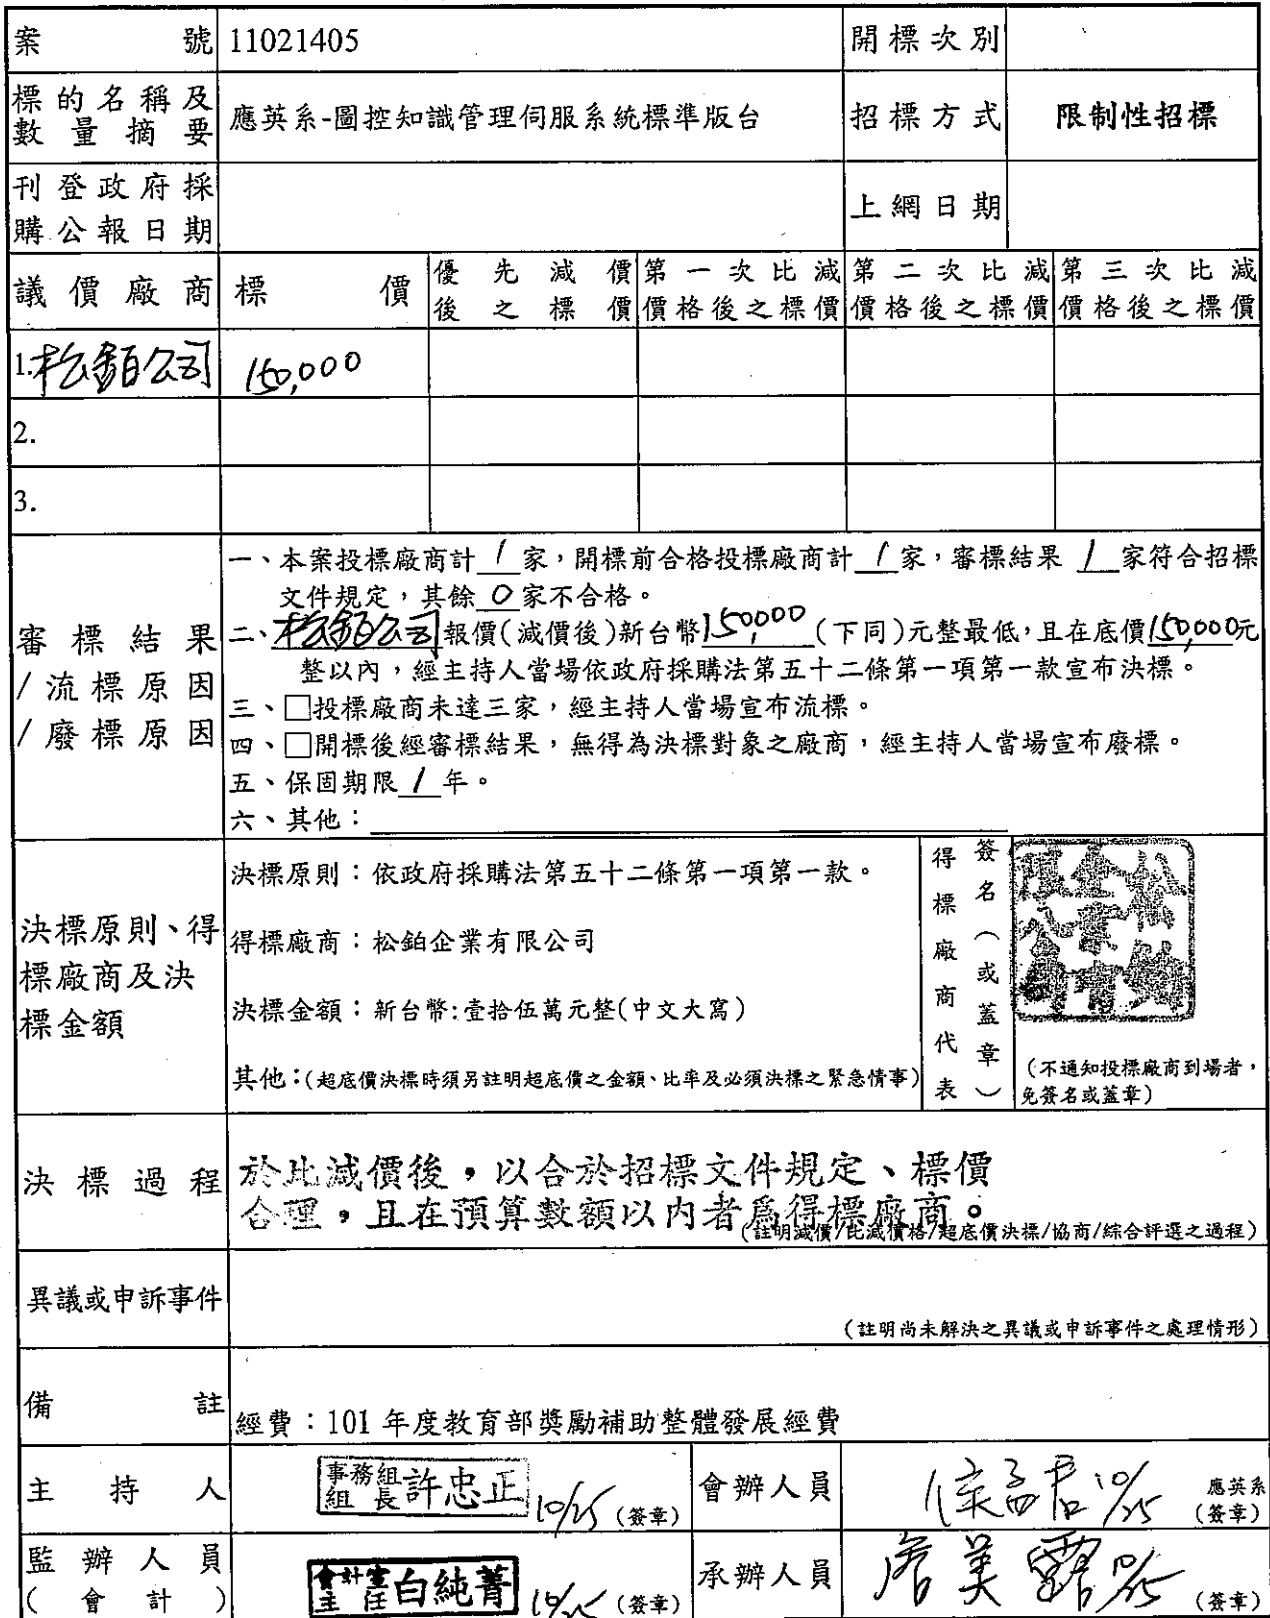 案號 11021405 開標次別
標的名稱及數量摘要 應英系-圖控知識管理伺服系統標準版台 招標方式 限制性招標
刊登政府採購公報日期 上網日期
議價廠商 標價 優先減價後之標價 第一次比減價格後之標價 第二次比減價格後之標價 第三次比減價格後之標價
1.松鉑公司 150,000
2.
3.
審標結果/流標原因/廢標原因
一、本案投標廠商計 1 家，開標前合格投標廠商計 1 家，審標結果 1 家符合招標
文件規定，其餘 0 家不合格。
二、松鉑公司報價(減價後)新台幣150,000(下同)元整最低，且在底價150,000元
整以內，經主持人當場依政府採購法第五十二條第一項第一款宣布決標。
三、□投標廠商未達三家，經主持人當場宣布流標。
四、□開標後經審標結果，無得為決標對象之廠商，經主持人當場宣布廢標。
五、保固期限 1 年。
六、其他：
決標原則、得標廠商及決標金額
決標原則：依政府採購法第五十二條第一項第一款。
得標廠商：松鉑企業有限公司
決標金額：新台幣:壹拾伍萬元整(中文大寫)
其他：(超底價決標時須另註明超底價之金額、比率及必須決標之緊急情事)
得標廠商代表簽名（或蓋章）
松鉑企業有限公司
(不通知投標廠商到場者，
免簽名或蓋章)
決標過程
於比減價後，以合於招標文件規定、標價
合理，且在預算數額以內者為得標廠商。
(註明減價/比減價格/超底價決標/協商/綜合評選之過程)
異議或申訴事件
(註明尚未解決之異議或申訴事件之處理情形)
備註 經費：101 年度教育部獎勵補助整體發展經費
主持人 事務組組長 許忠正 10/25 (簽章) 會辦人員 10/25 應英系 (簽章)
監辦人員(會計) 會計室主任 白純菁 10/25 (簽章) 承辦人員 詹美露 10/25 (簽章)